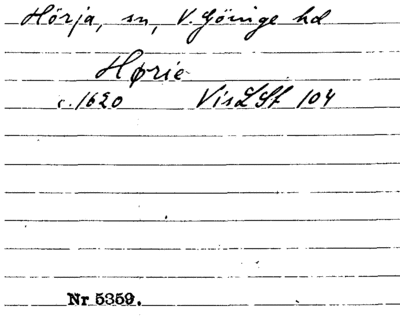 Hörja, sn, V. Göinge hd
Hørie
c. 1620 VisLSt 104
Nr 5359.